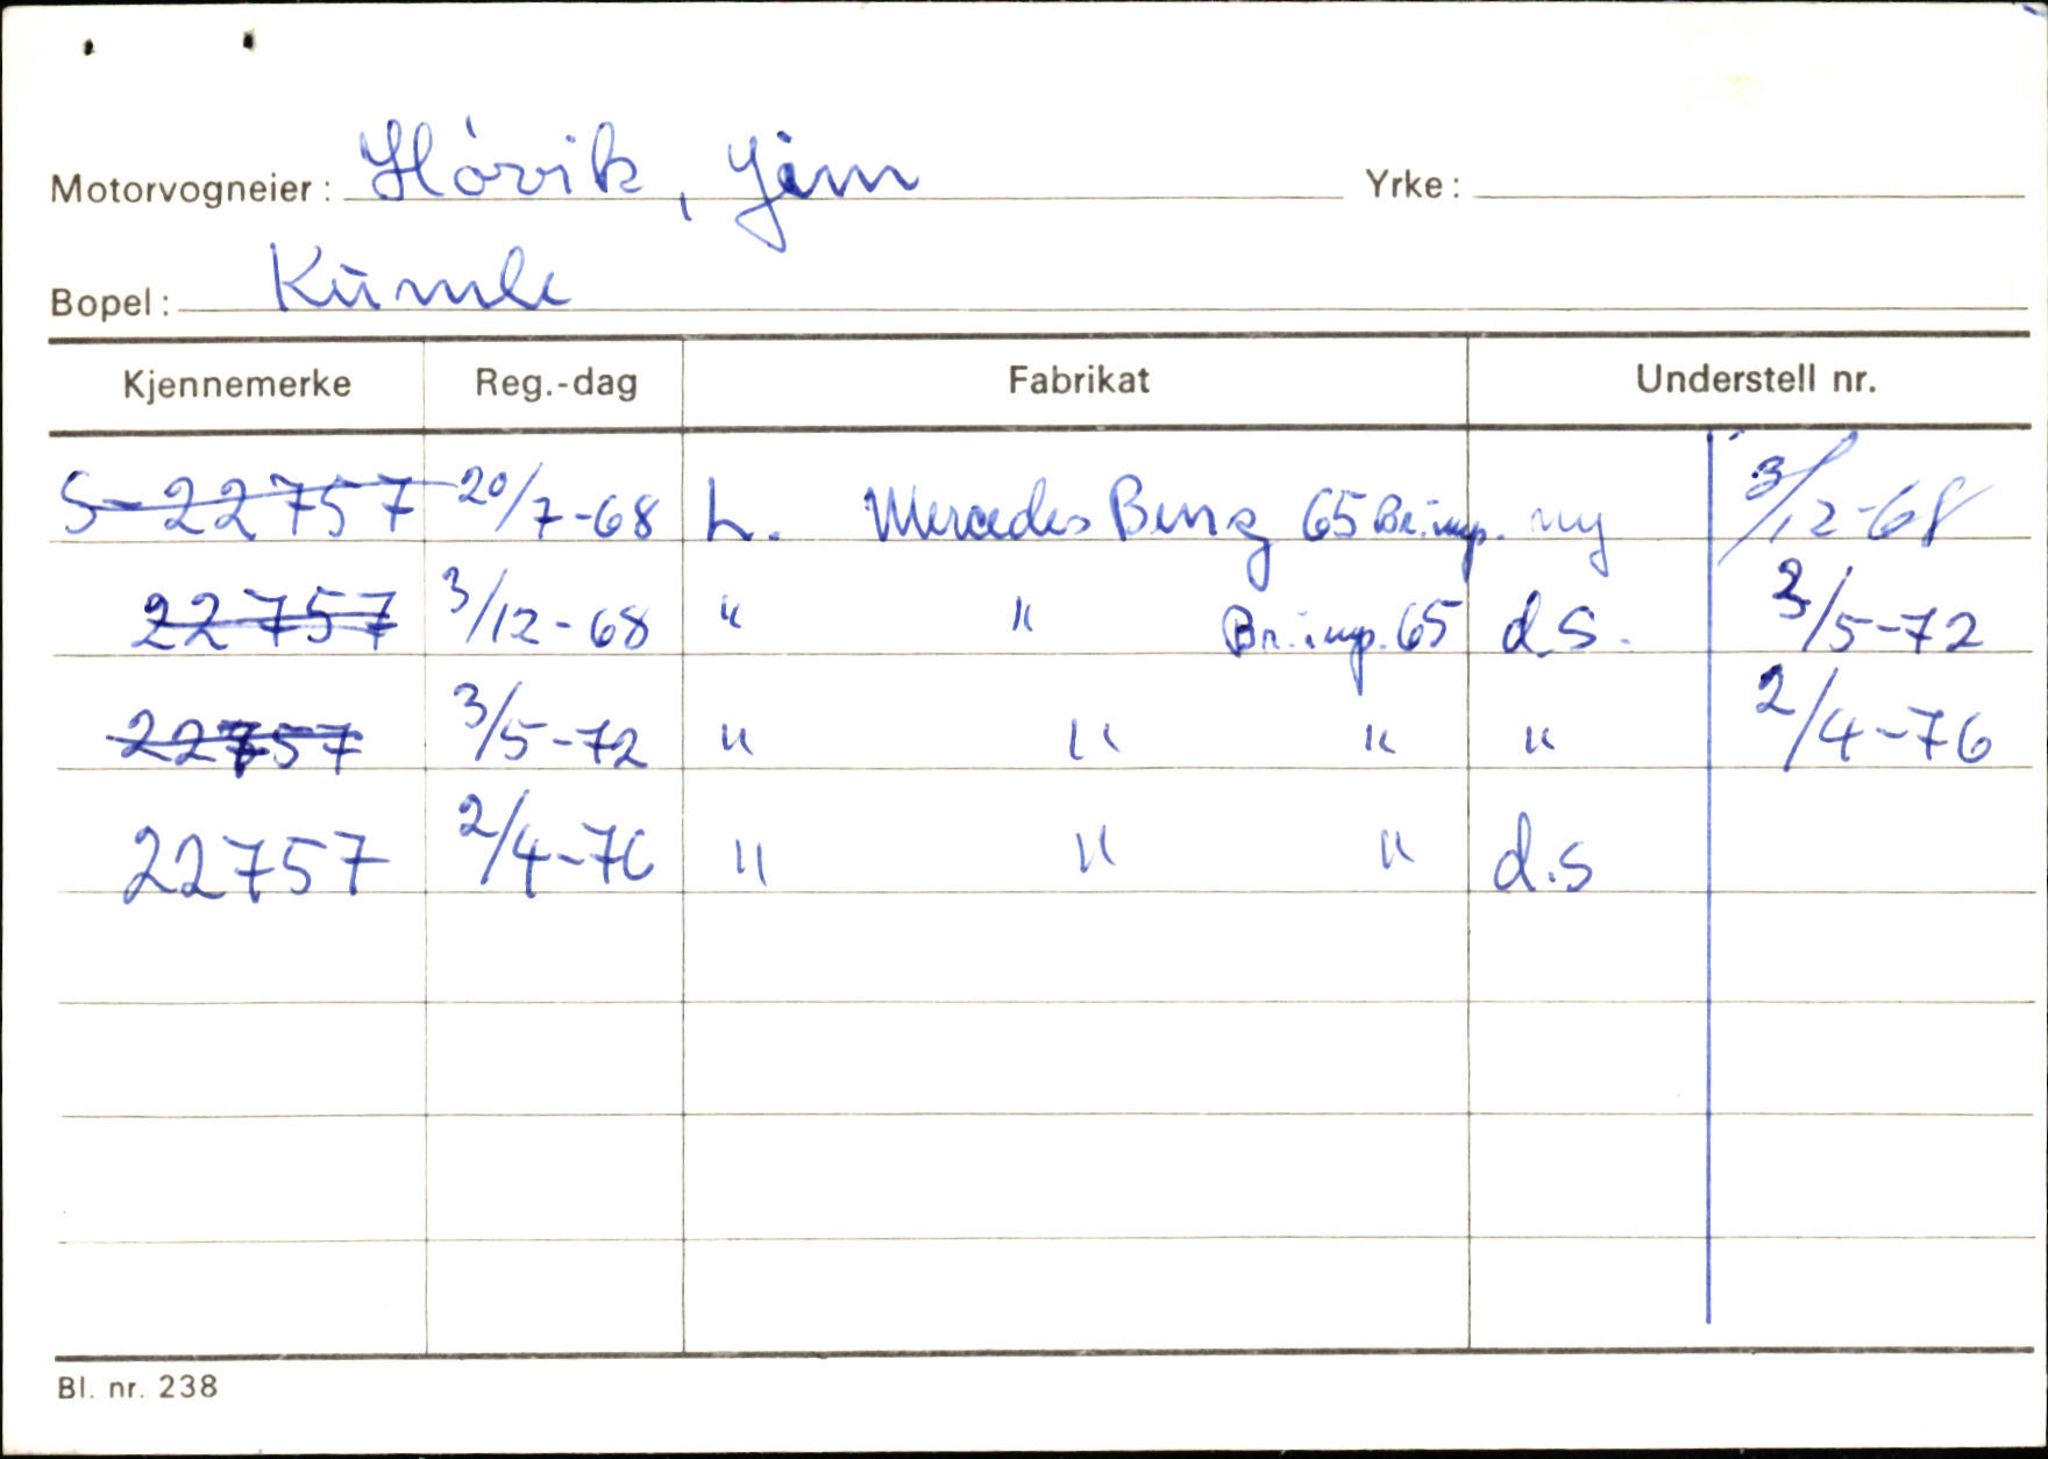 Motorvogneier: Hårvik, Jim Yrke:
Bopel: Kumle
Kjennemerke Reg.-dag Fabrikat Understell nr.
S-22757 20/7-68 L. Mercedes Benz 65 Br.imp. ny 3/12-68
22757 3/12-68 " " Br.imp. 65 d.s. 3/5-72
22757 3/5-72 " " " " 2/4-76
22757 2/4-76 " " " d.s
Bl. nr. 238